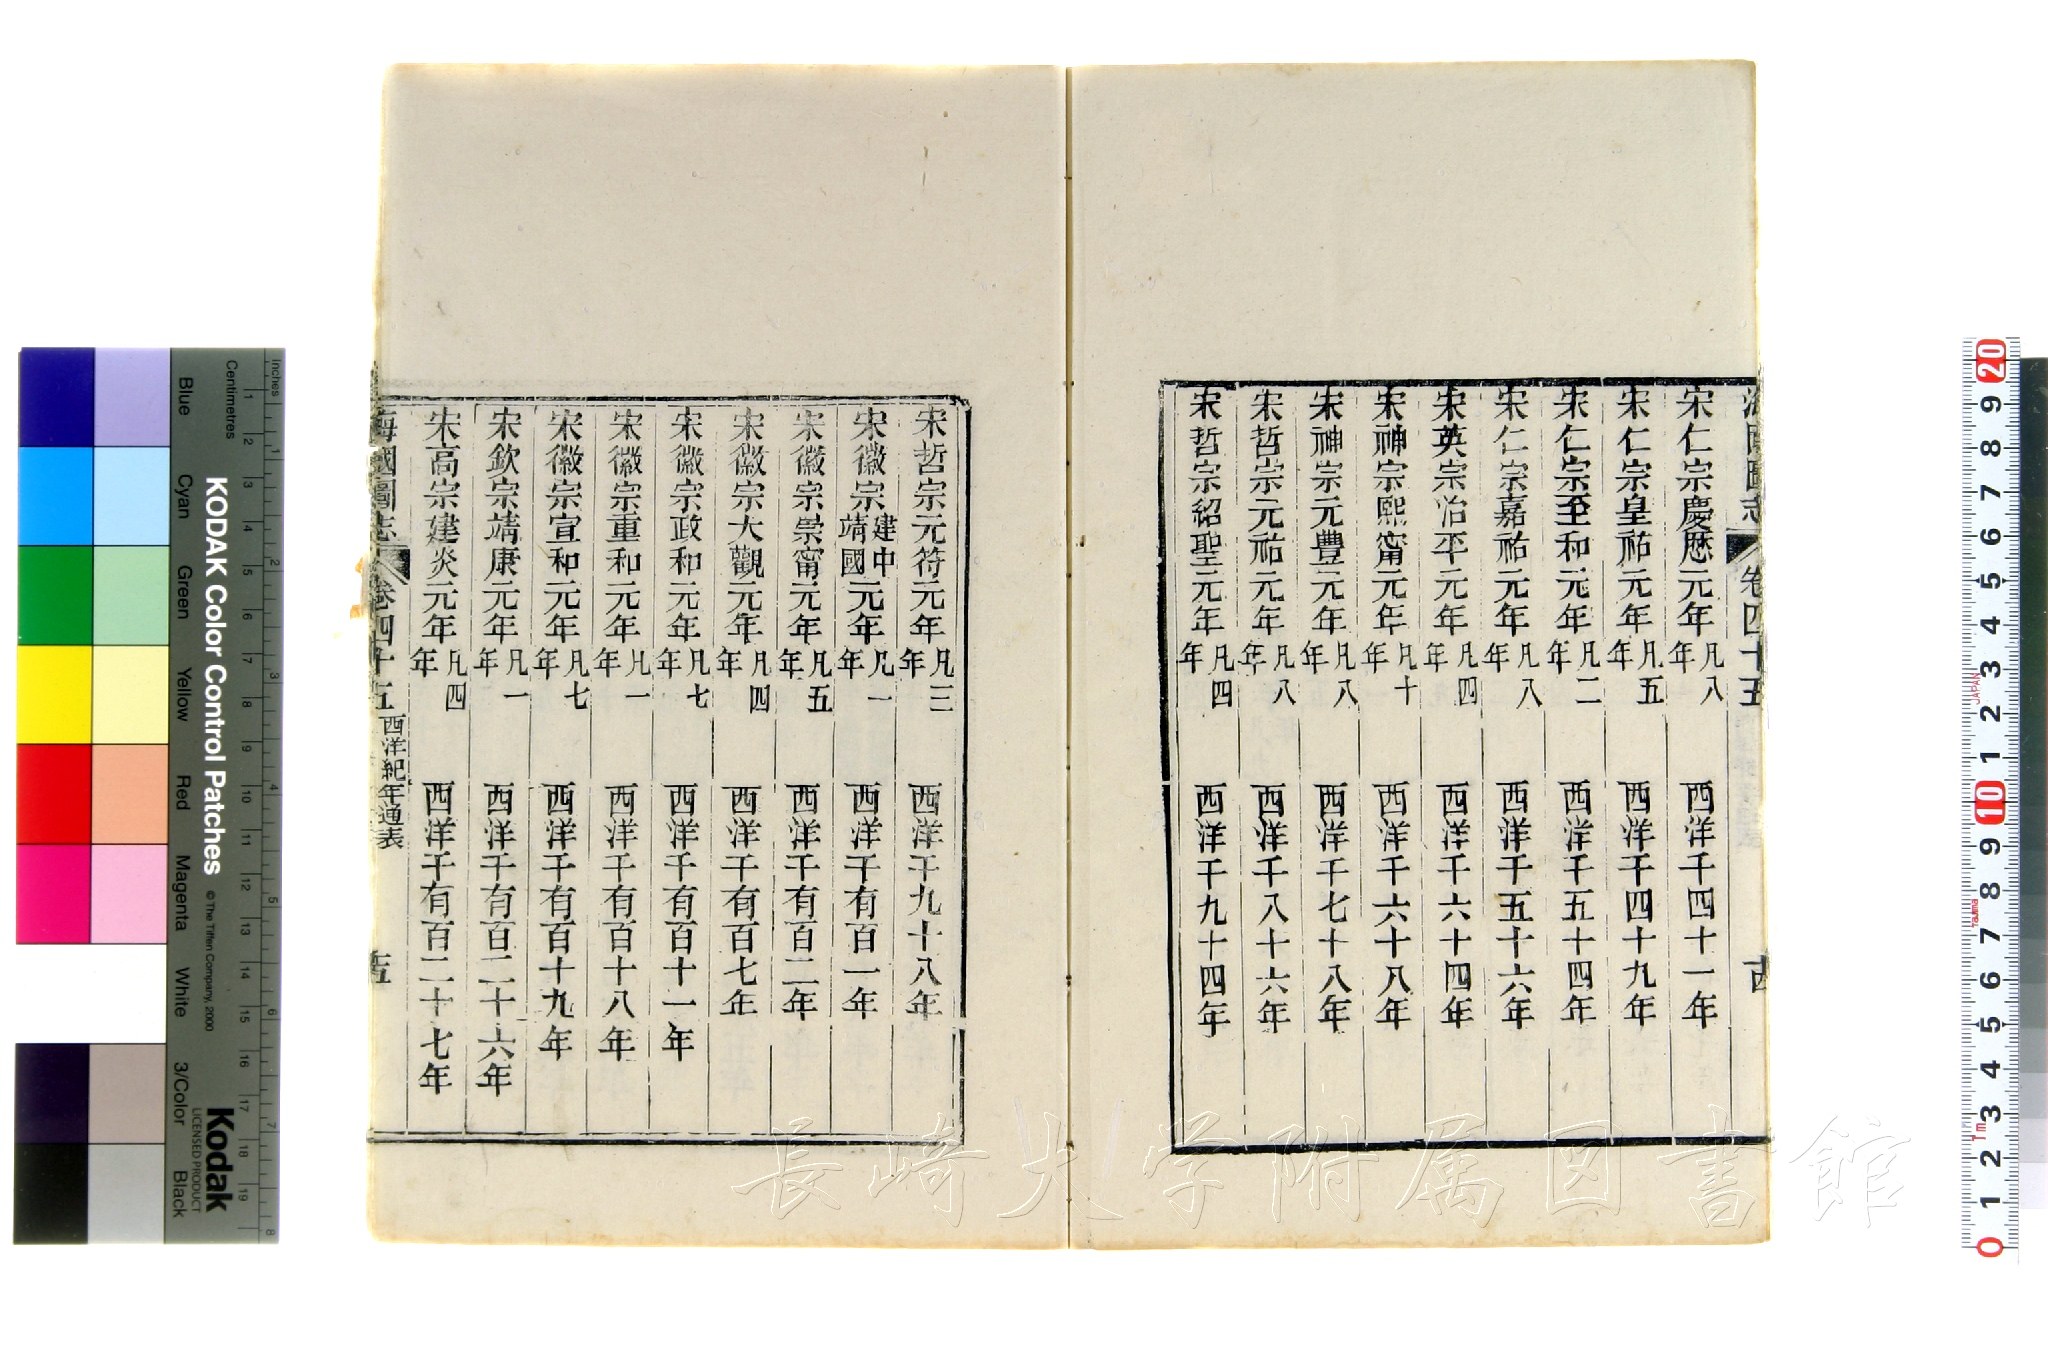 海國圖志 卷四十五
宋仁宗慶歷元年凡八年 西洋千四十一年
宋仁宗皇祐元年凡五年 西洋千四十九年
宋仁宗至和元年凡二年 西洋千五十四年
宋仁宗嘉祐元年凡八年 西洋千五十六年
宋英宗治平元年凡四年 西洋千六十四年
宋神宗熙甯元年凡十年 西洋千六十八年
宋神宗元豐元年凡八年 西洋千七十八年
宋哲宗元祐元年凡八年 西洋千八十六年
宋哲宗紹聖元年凡四年 西洋千九十四年
宋哲宗元符元年凡三年 西洋千九十八年
宋徽宗建中靖國元年凡一年 西洋千有百一年
宋徽宗崇甯元年凡五年 西洋千有百二年
宋徽宗大觀元年凡四年 西洋千有百七年
宋徽宗政和元年凡七年 西洋千有百十一年
宋徽宗重和元年凡一年 西洋千有百十八年
宋徽宗宣和元年凡七年 西洋千有百十九年
宋欽宗靖康元年凡一年 西洋千有百二十六年
宋高宗建炎元年凡四年 西洋千有百二十七年
海國圖志 卷四十五 西洋紀年通表
長崎大学附属図書館
Inches
Centimetres
KODAK Color Control Patches
© The Tiffen Company, 2000
Kodak
LICENSED PRODUCT
Blue
Cyan
Green
Yellow
Red
Magenta
White
3/Color
Black
1 2 3 4 5 6 7 8
1 2 3 4 5 6 7 8 9 10 11 12 13 14 15 16 17 18 19
20 9 8 7 6 5 4 3 2 1 10 9 8 7 6 5 4 3 2 1 0
JAPAN